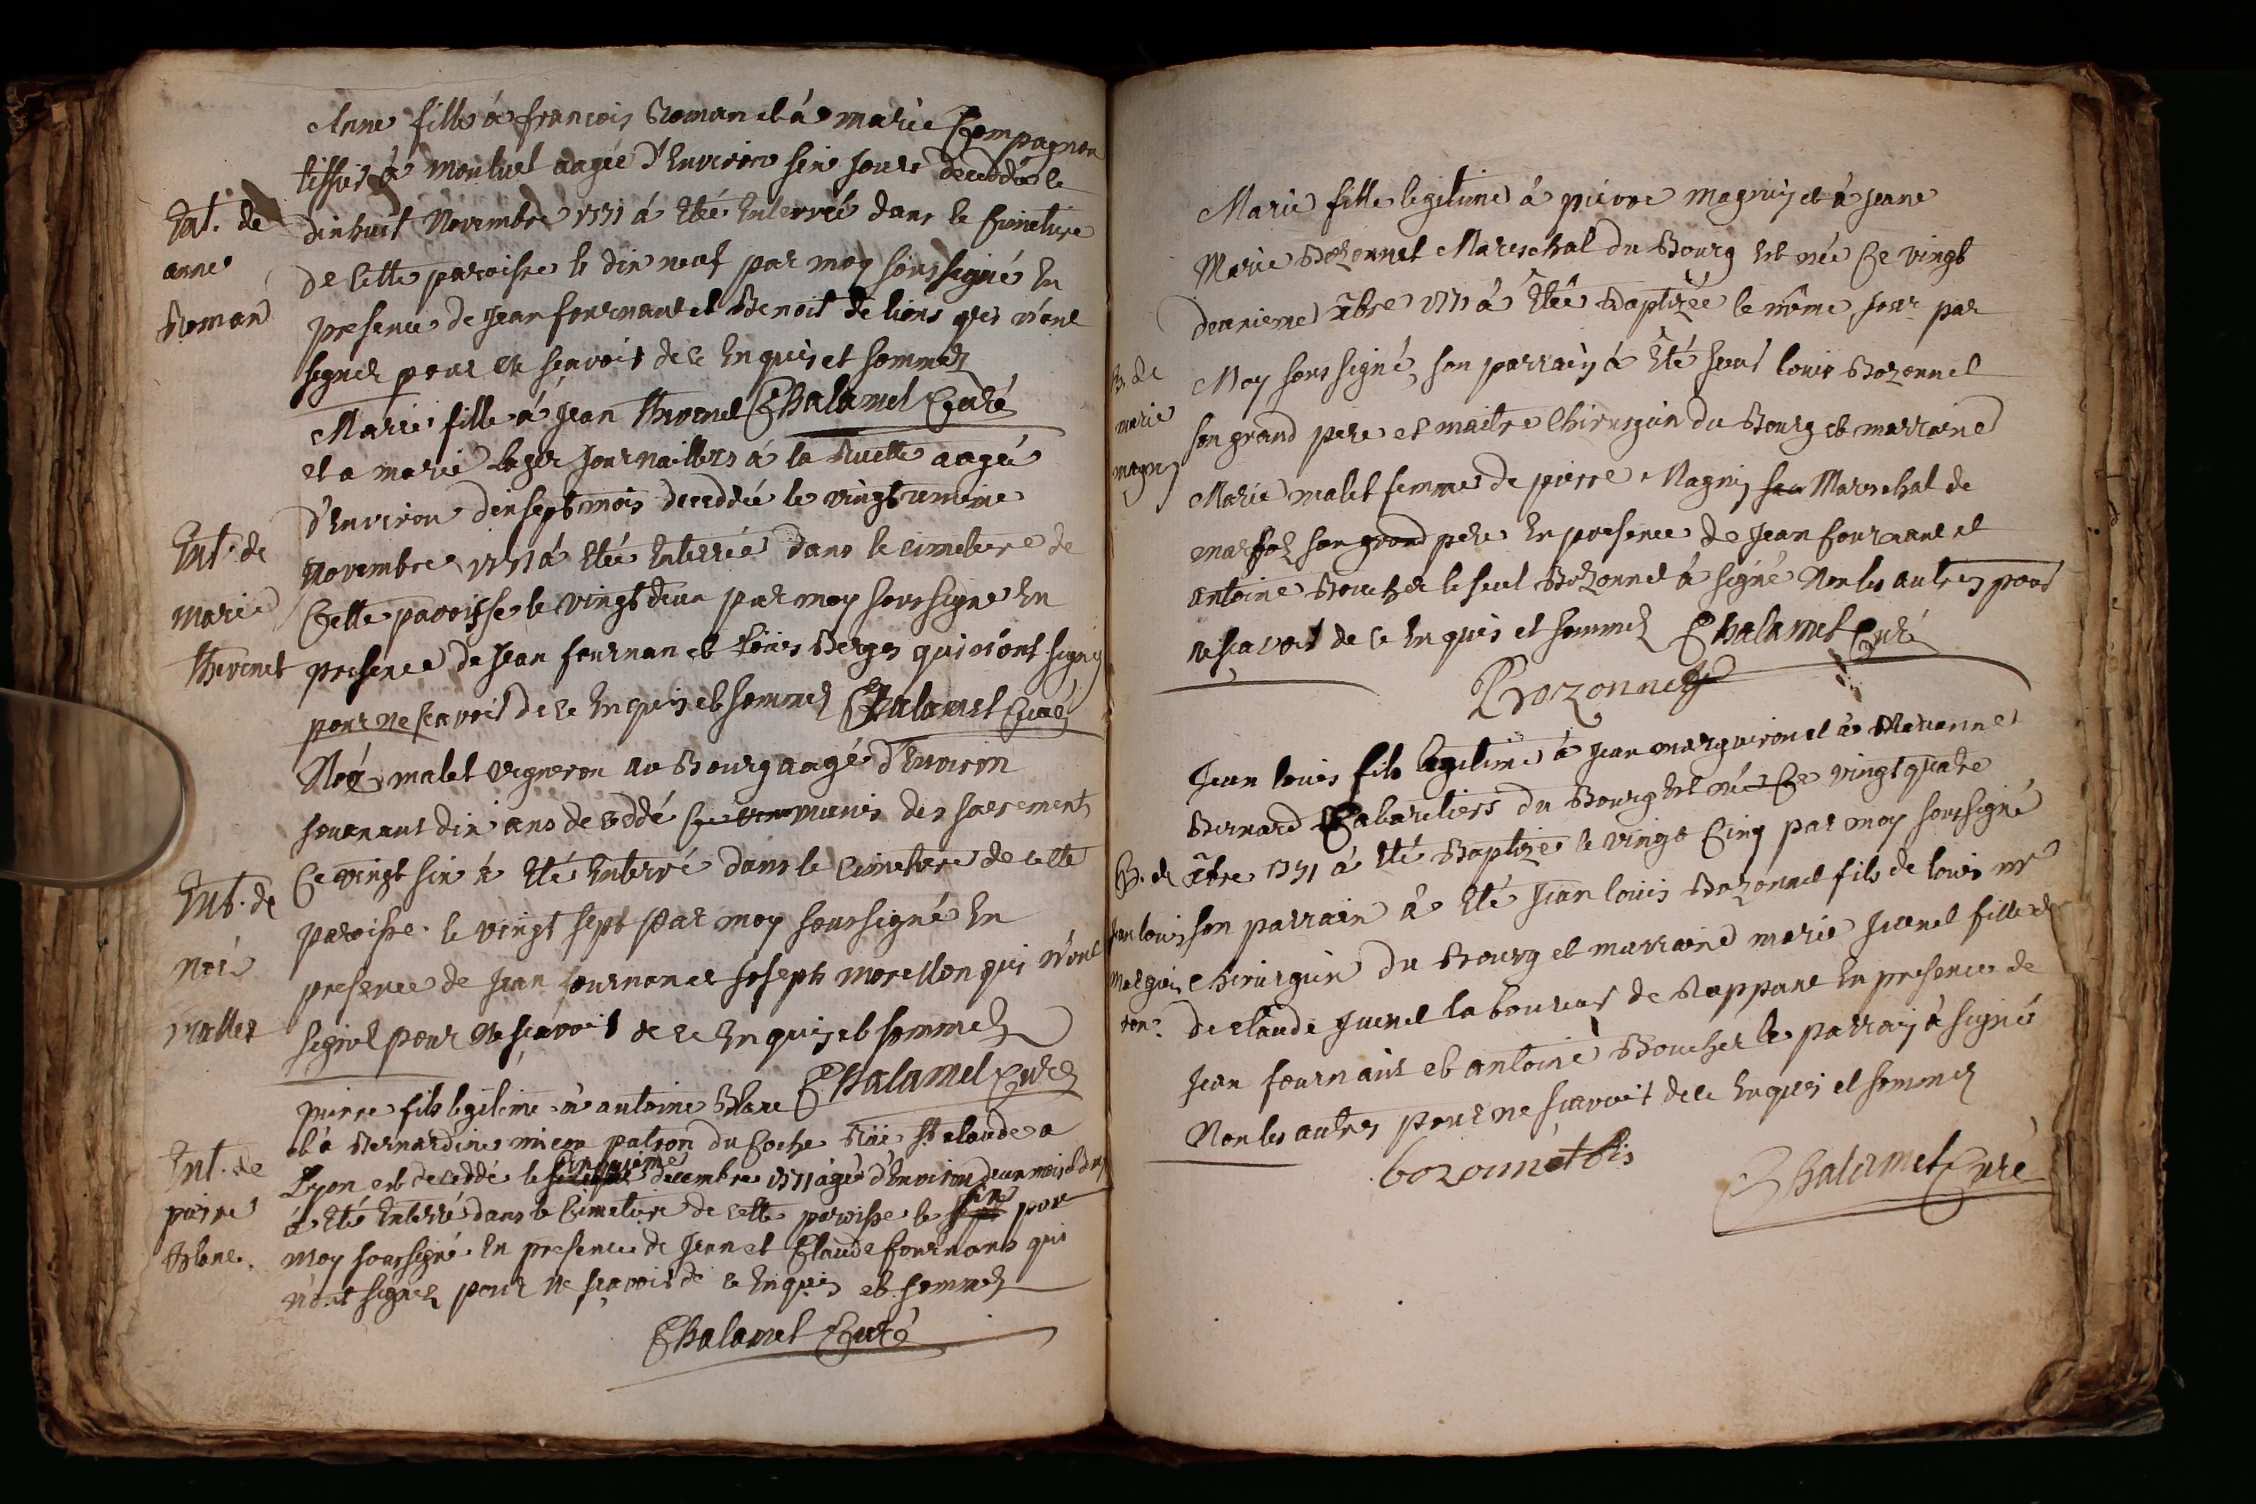 Anne fille à françois Roman et à marie Compagnon
tissier à montuel aagée d'Environ six jours deceddée le
Ent. de
anne
Roman
dixhuit Novembre 1771 à Eté Enterrée dans le Cimetiere
de Cette paroisse le dix neuf par moy soussigné En
presence de Jean fournant et Benoit de lions qui n'ont
signez pour ne scavoir de ce Enquis et sommez
Chalamel Curé
Marie fille à Jean thivenet
et a marie Lager Journailliers à la Ruette aagée
d'Environ dixsept mois deceddée le vingt unieme
Ent. de
marie
thivenet
Novembre 1771 à Eté Enterrée dans le cimetiere de
Cette paroisse le vingt deux par moy soussigné En
presence de Jean fournan et Louis Berger qui n'ont signez
pour ne scavoir de ce Enquis et sommez Chalamel Curé
Noé malet vigneron au Bourg aagé d'Environ
souexant dix ans deceddé munis des sacrements
Ent. de
Noé
mallet
Ce vingt six à Eté Enterré dans le Cimetiere de cette
paroisse le vingt sept par moy soussigné En
presence de Jean fournan et Joseph morellon qui n'ont
signé pour ne scavoir de ce Enquis et sommez
Chalamel Curé
pierre fils legitime à antoine Blanc
et à Bernardine micon patron du Coche Rüe St Claude a
Ent. de
pierre
Blanc.
Lyon est deceddé le cinquième decembre 1771 agé d'Environ deux mois et demy
à Eté Enterré dans le Cimetiere de cette paroisse le six par
moy soussigné En presence de Jean et Claude fournans qui
n'ont signez pour ne scavoir de ce Enquis et sommez
Chalamel Curé
Marie fille legitime à pierre magnin et à jeanne
Marie Bozonnet Mareschal du Bourg Est née Ce vingt
deuxieme Xbre 1771 à Etée Baptizée le même Jour par
B. de
marie
magnin
Moy soussigné, son parrain à Eté sieur louis Bozonnet
son grand pere et maitre Chirurgien du Bourg et marraine
Marie malet femme de pierre Magnin Mareschal de
marfoz son grand pere En presence de Jean fournant et
antoine Boucher le seul Bozonnet à signé Non les autres pour
ne scavoir de ce Enquis et sommez Chalamel Curé
Bozonnet
Jean louis fils legitime à Jean marguiron et à Marianne
Bernard Cabaretiers du Bourg Est né Ce vingt quatre
B. de
Jean louis
marguiron
Xbre 1771 à Eté Baptizé le vingt Cinq par moy soussigné
son parrain à Eté Jean louis Bozonnet fils de louis mr
Chirurgien du Bourg et marraine marie Juenet fille
de Claude Juenet laboureur de Rappant En presence de
Jean fournant et antoine Boucher le parrain à signé
Non les autres pour ne scavoir de ce Enquis et sommez
bozonnet fils
Chalamel Curé